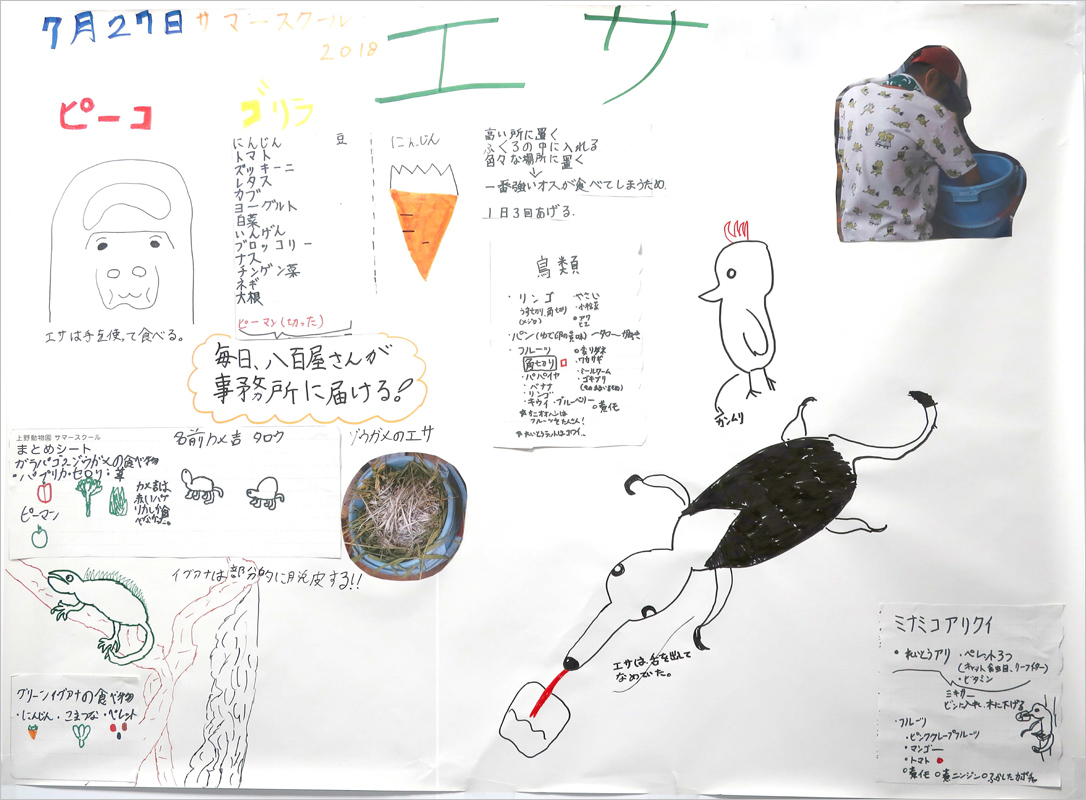 7月27日 サマースクール
2018
エサ
ピーコ
エサは手を使って食べる。
ゴリラ
にんじん
トマト
ズッキーニ
レタス
カブ
ヨーグルト
白菜
いんげん
ブロッコリー
ナス
チンゲン菜
ネギ
大根
ピーマン(切った)
豆
にんじん
高い所に置く
ふくろの中に入れる
色々な場所に置く
↓
一番強いオスが食べてしまうため.
1日3回あげる.
毎日、八百屋さんが
事務所に届ける!
鳥類
・リンゴ
うすきり、角切り
(メジロ)
やさい
・小松菜
・アワ
ヒエ
・フルーツ
角切り
・パパイヤ
・バナナ
・リンゴ
・キウイ・ブルーベリー
・ワカサギ
・ミールワーム
・ゴキブリ
フルーツをたくさん!
カンムリ
上野動物園 サマースクール
まとめシート
名前カメ吉 タロウ
ガラパゴスゾウガメの食べ物
・パプリカ・セロリ・草
ピーマン
カメ吉は
赤いパプ
リカしか食
べなかった。
ゾウガメのエサ
イグアナは部分的に脱皮する!!
グリーンイグアナの食べ物
・にんじん・こまつな・ペレット
エサは、舌を出して
なめていた。
ミナミコアリクイ
・れいとうアリ ・ペレット3つ
(キャット、食虫目、リーフイーター)
・ビタミン
ミキサー
ビンに入れ、木に下げる
・フルーツ
・ピンクグレープフルーツ
・マンゴー
・トマト